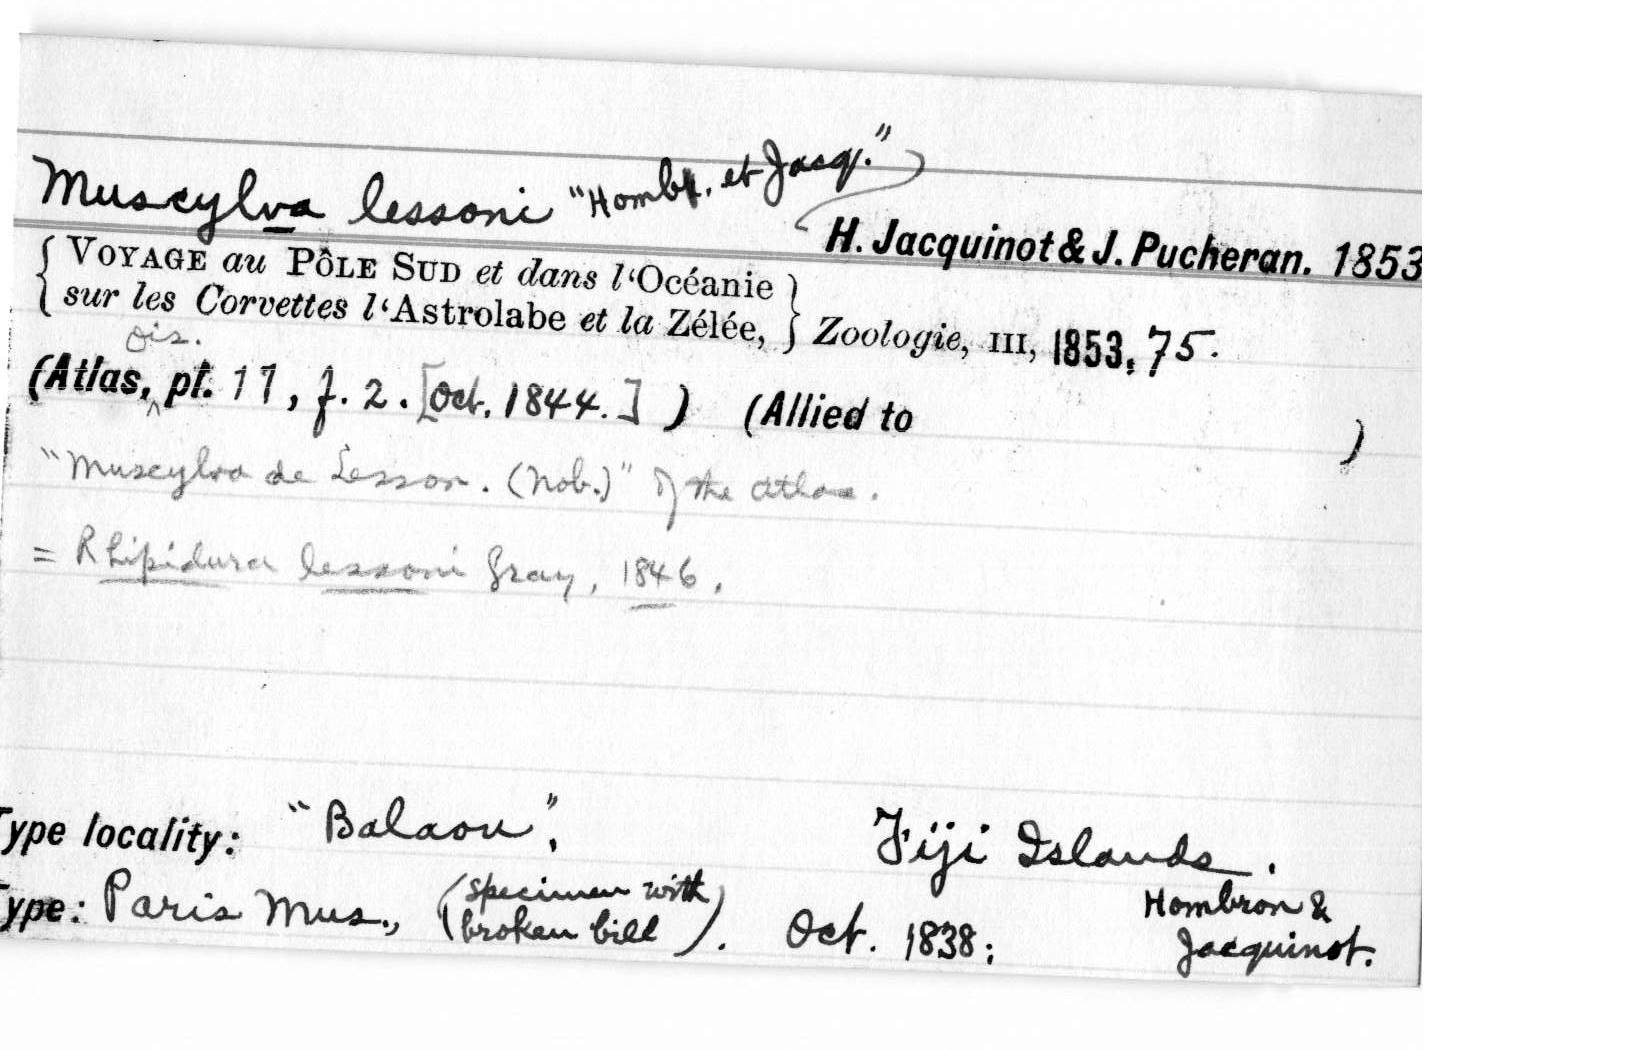 Muscylva lessoni "Hombr. et Jacq."
H. Jacquinot & J. Pucheran. 1853
{ VOYAGE au PÔLE SUD et dans l'Océanie }
{ sur les Corvettes l'Astrolabe et la Zélée, } Zoologie, III, 1853, 75.
ois.
(Atlas, ^ pl. 11, f. 2. [Oct. 1844.] ) (Allied to )
"Muscylva de Lesson. (Nob.)" of the atlas.
= Rhipidura lessoni Gray, 1846.
Type locality: "Balaou", Fiji Islands.
Type: Paris Mus., (specimen with broken bill). Oct. 1838; Hombron &
Jacquinot.